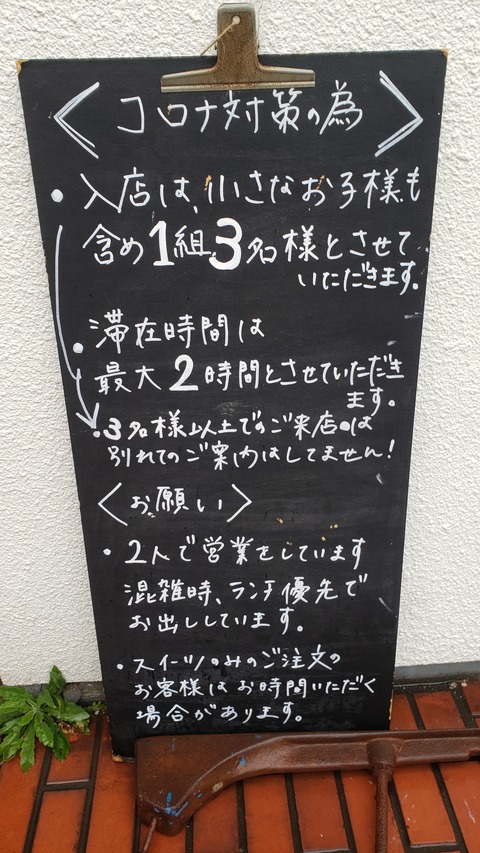 ＜コロナ対策の為＞
・入店は、小さなお子様も
含め1組3名様とさせて
いただきます。
・滞在時間は
最大2時間とさせていただき
ます。
・3名様以上でのご来店は
別れてのご案内はしてません!
＜お願い＞
・2人で営業をしています
混雑時、ランチ優先で
お出ししています。
・スイーツのみのご注文の
お客様はお時間いただく
場合があります。